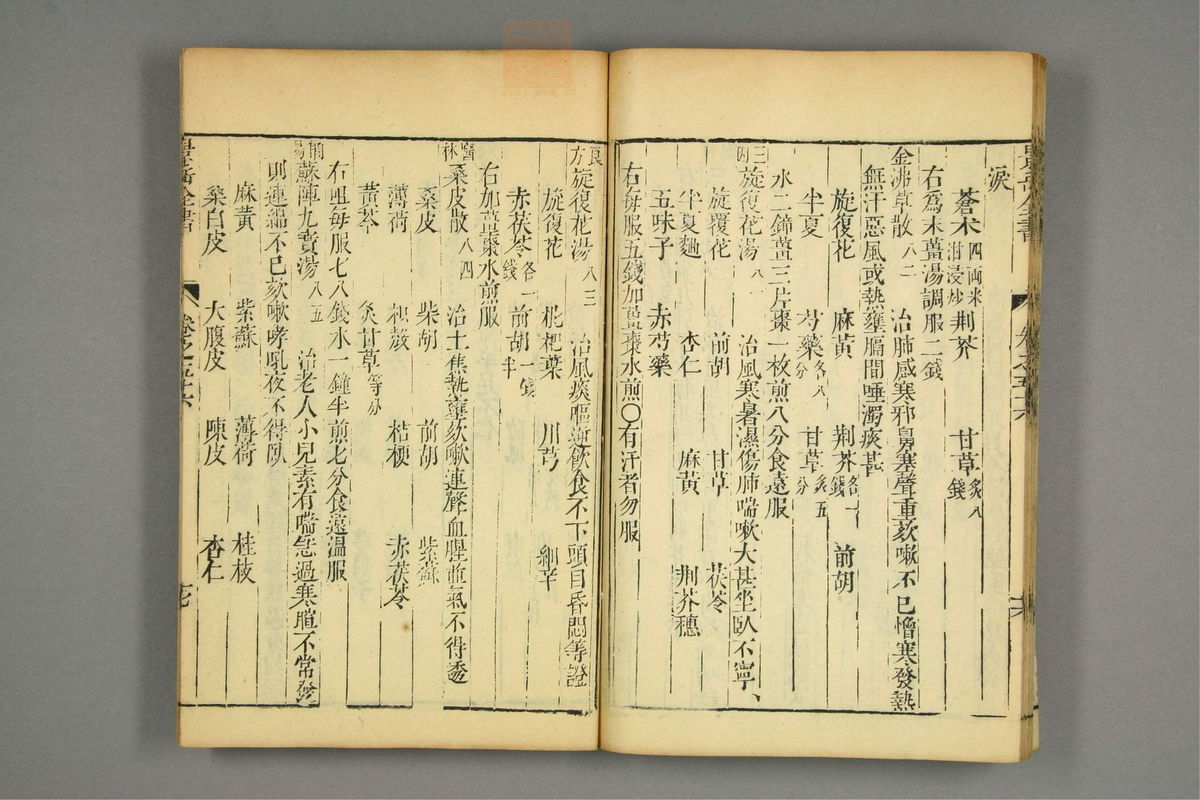 淚
蒼朮四両米泔浸炒 荆芥 甘草炙八錢
右爲末薑湯調服二錢
金沸草散八二 治肺感寒邪鼻塞聲重欬嗽不已憎寒發熱
無汗惡風或熱壅膈間唾濁痰甚
旋復花 麻黄 荆芥各一錢 前胡
半夏 芍藥各八分 甘草炙五分
水二鍾薑三片棗一枚煎八分食遠服
三因旋復花湯八 治風寒暑濕傷肺喘嗽大甚坐臥不寧
旋覆花 前胡 甘草 茯苓
半夏麯 杏仁 麻黄 荆芥穗
五味子 赤芍藥
右每服五錢加薑棗水煎○有汗者勿服
良方旋復花湯八三 治風痰嘔逆飲食不下頭目昏悶等證
旋復花 枇杷葉 川芎 細辛
赤茯苓各一錢 前胡一錢半
右加薑棗水煎服
醫林桑皮散八四 治上焦熱壅欬嗽連聲血腥並氣不得透
桑皮 柴胡 前胡 紫蘇
薄荷 枳殼 桔梗 赤茯苓
黄芩 炙甘草等分
右㕮咀每服七八錢水一鍾半煎七分食遠溫服
簡易蘇陳九寳湯八五 治老人小兒素有喘急遇寒暄不常發
則連綿不已欬嗽哮吼夜不得臥
麻黄 紫蘇 薄荷 桂枝
桑白皮 大腹皮 陳皮 杏仁
景岳全書 卷之五十六